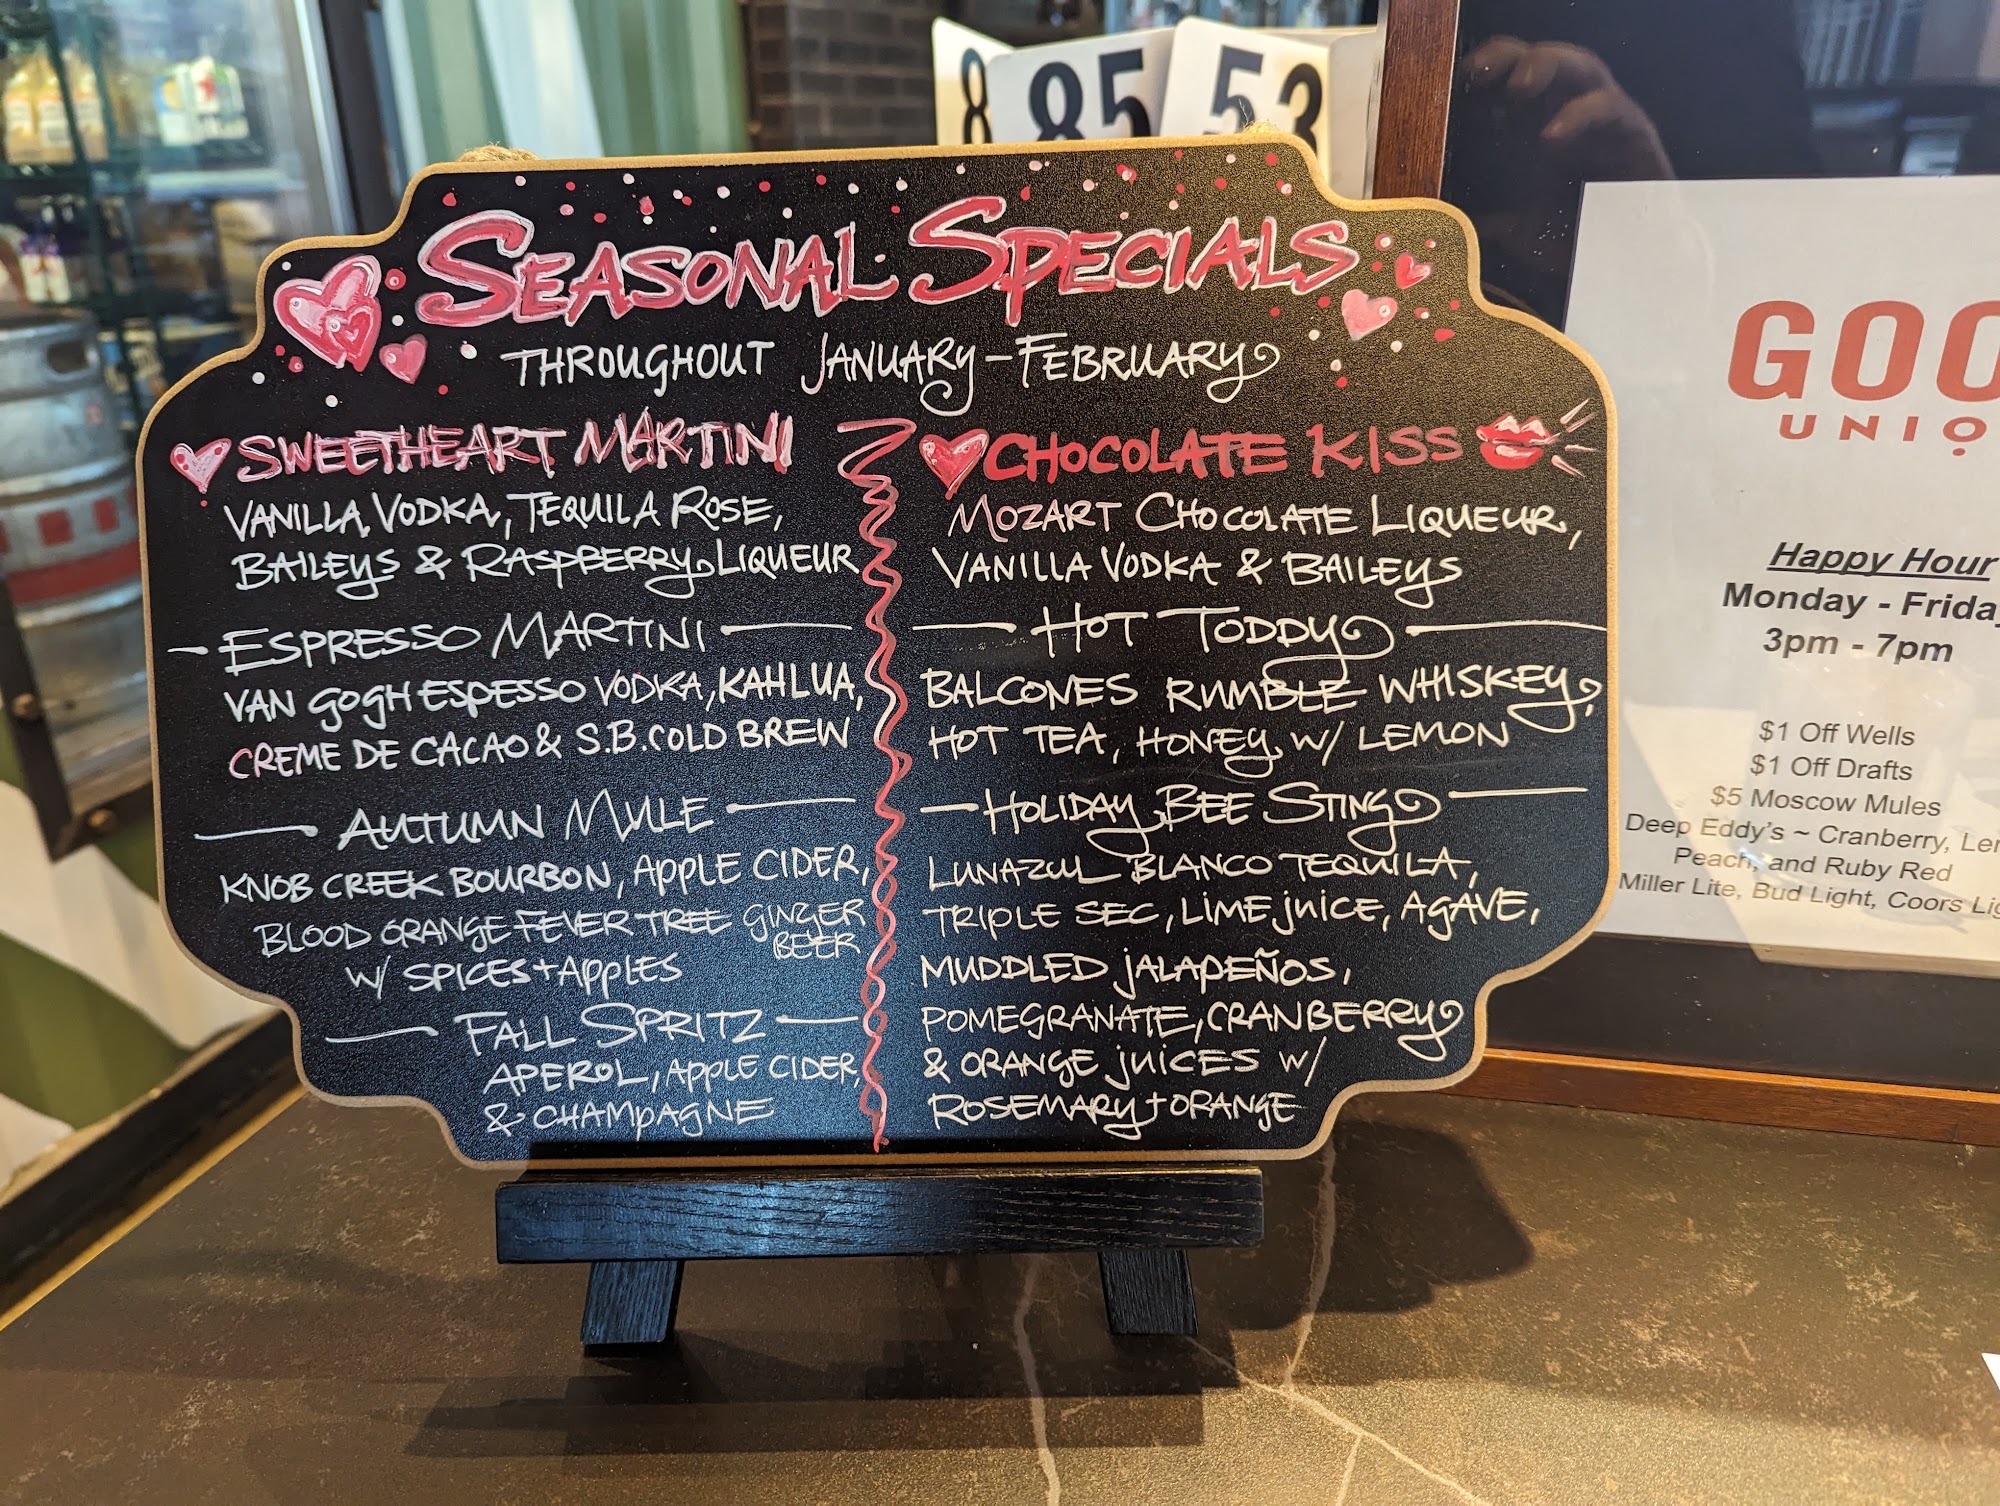 8
85
53
SEASONAL SPECIALS
THROUGHOUT JANUARY-FEBRUARY
SWEETHEART MARTINI
VANILLA VODKA, TEQUILA ROSE,
BAILEYS & RASPBERRY LIQUEUR
ESPRESSO MARTINI
VAN GOGH ESPESSO VODKA, KAHLUA,
CREME DE CACAO & S.B. COLD BREW
AUTUMN MULE
KNOB CREEK BOURBON, APPLE CIDER,
BLOOD ORANGE FEVER TREE GINGER
BEER
W/ SPICES + APPLES
FALL SPRITZ
APEROL, APPLE CIDER,
& CHAMPAGNE
CHOCOLATE KISS
MOZART CHOCOLATE LIQUEUR,
VANILLA VODKA & BAILEYS
HOT TODDY
BALCONES RUMBLE WHISKEY,
HOT TEA, HONEY W/ LEMON
HOLIDAY BEE STING
LUNAZUL BLANCO TEQUILA,
TRIPLE SEC, LIME JUICE, AGAVE,
MUDDLED JALAPEÑOS,
POMEGRANATE, CRANBERRY
& ORANGE JUICES W/
ROSEMARY + ORANGE
GOO
UNIQ
Happy Hour
Monday - Friday
3pm - 7pm
$1 Off Wells
$1 Off Drafts
$5 Moscow Mules
Deep Eddy's ~ Cranberry, Le
Peach, and Ruby Red
Miller Lite, Bud Light, Coors Lig